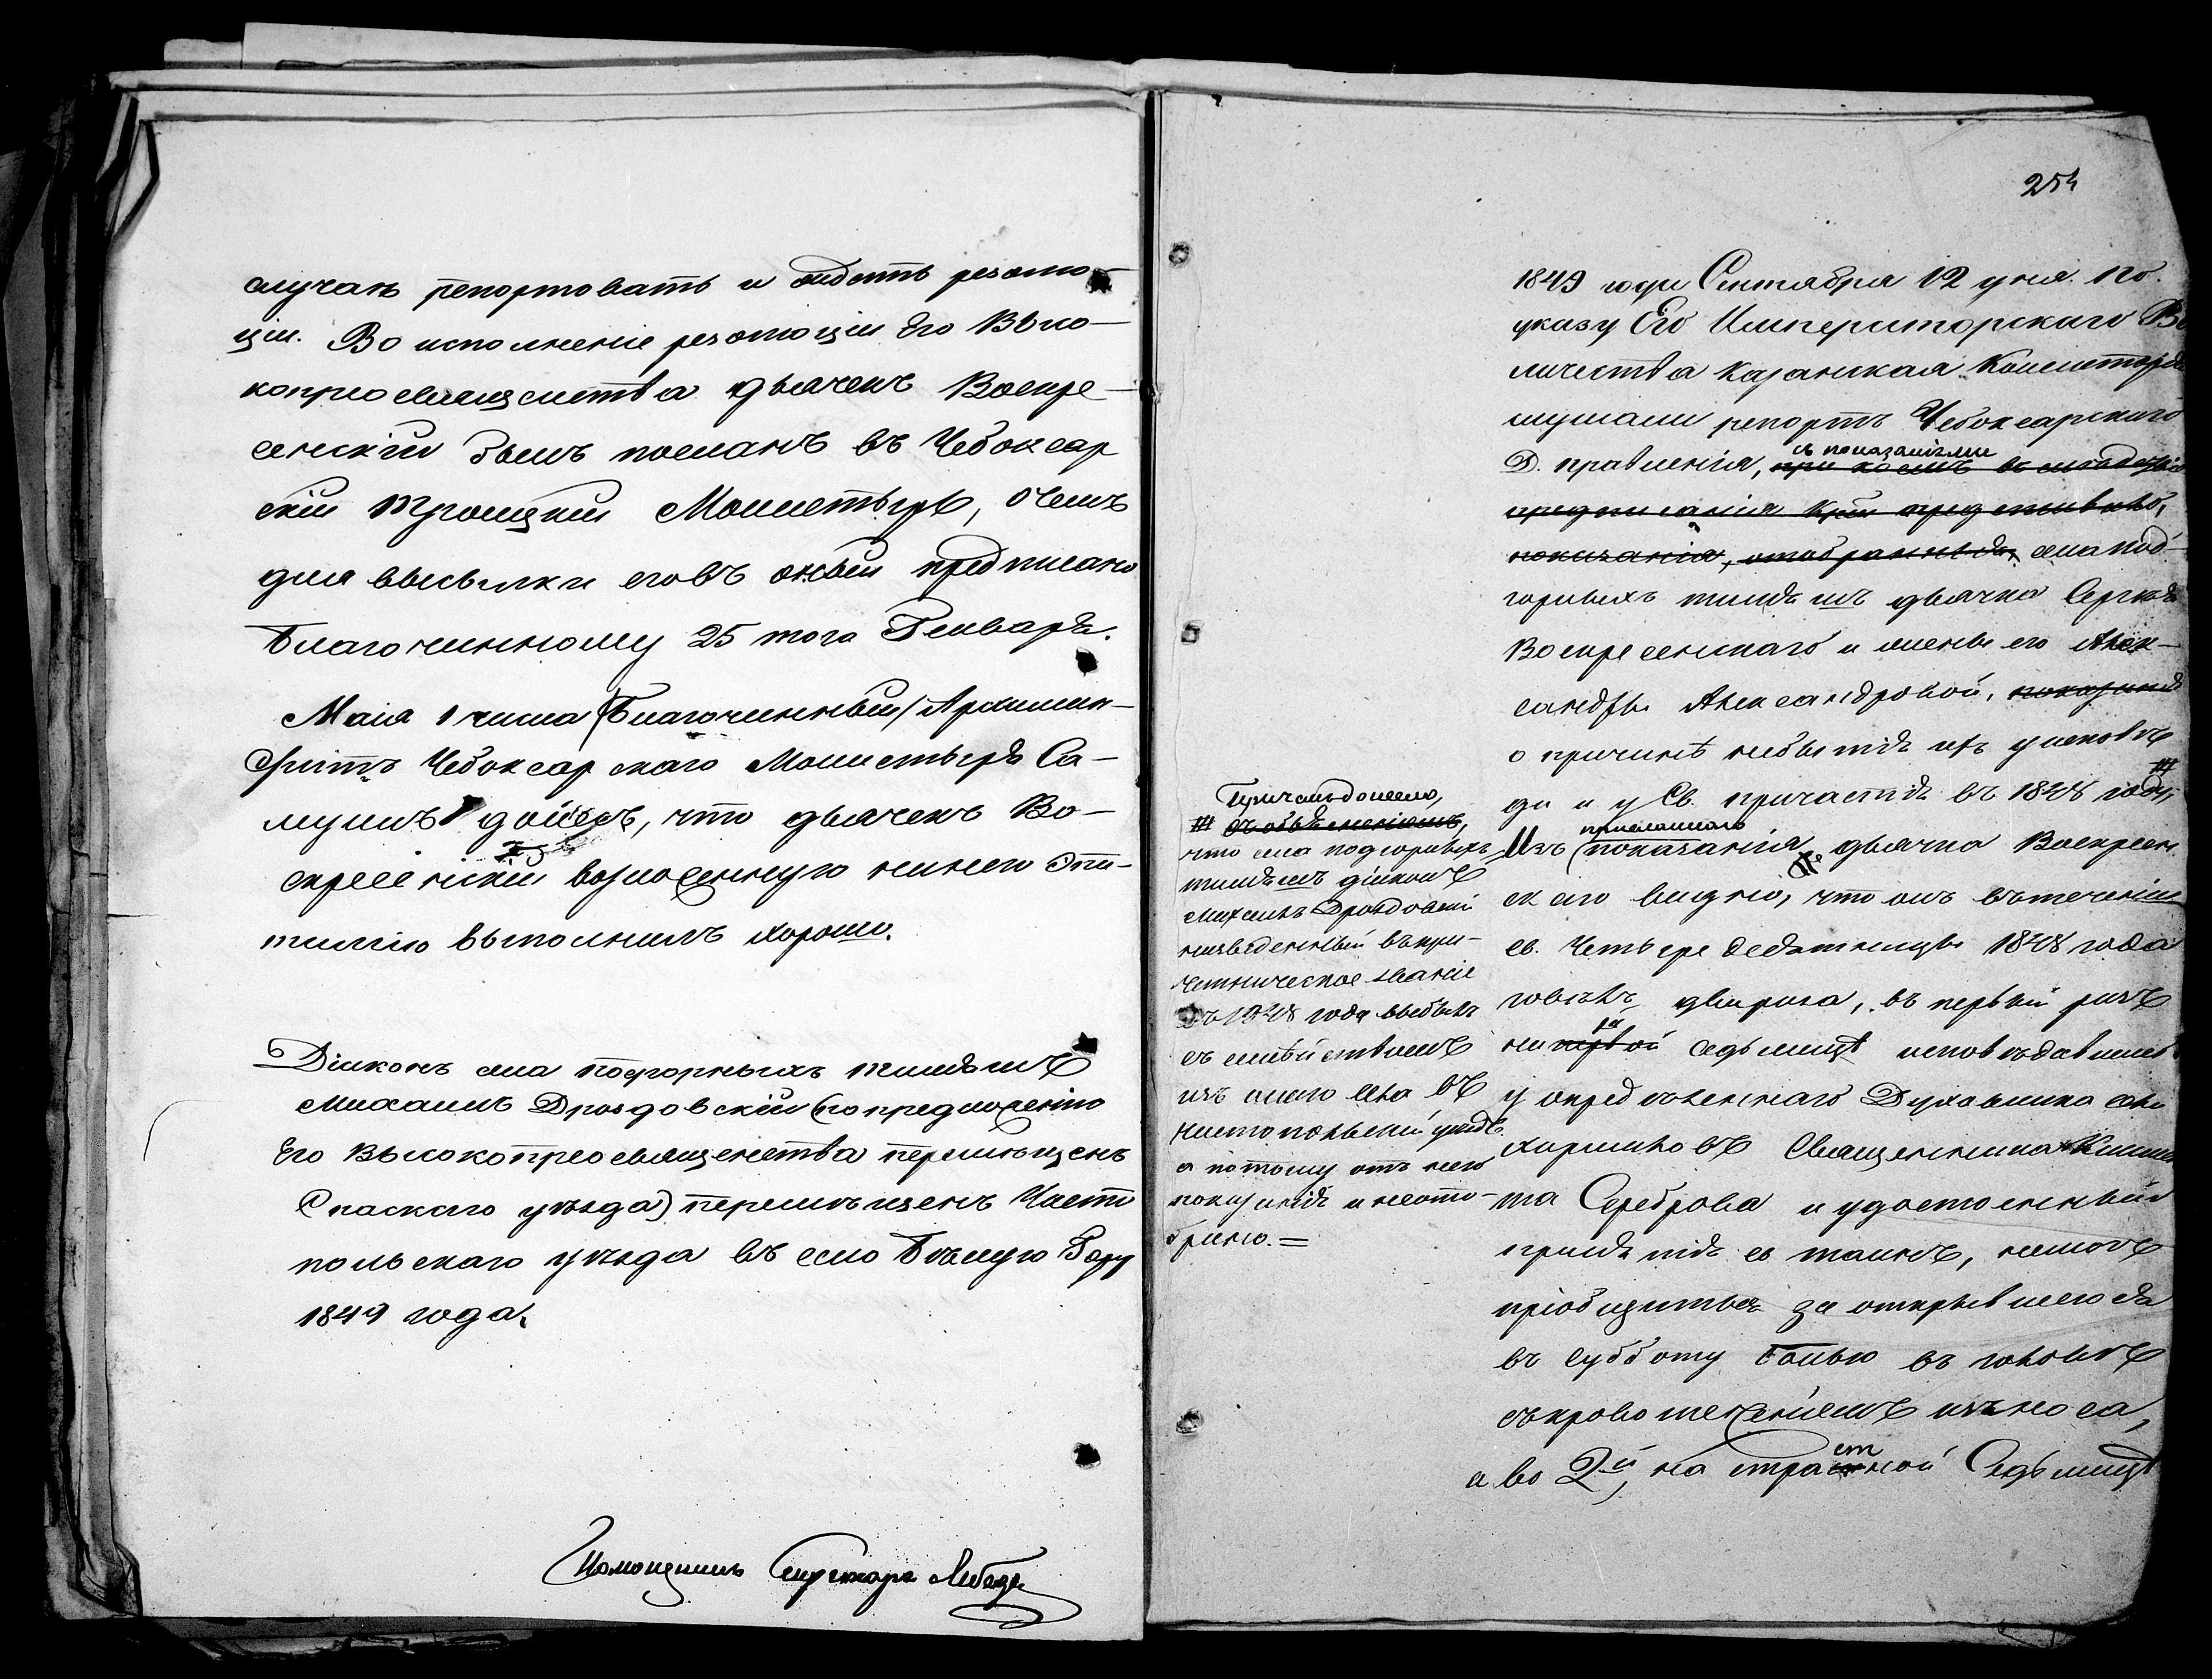 случаѣ репортовать и ждать резолю-
ціи. Во исполненіе резолюціи Его Высо-
копреосвященства дьячекъ Воскре-
сенскій былъ посланъ въ Чебоксар
скій Троицкій Монастырь, о чемъ
для высылки его въ оный предписано
Благочинному 25 того Генваря.
Маія 1 числа (Благочинный) Архиман-
дритъ Чебоксарскаго Монастыря Са-
муилъ донесъ, что дьячекъ Во-
скресенскій возложенную на него Эпи-
тимію выполнилъ хорошо.
Діаконъ села Подгорныхъ Тимяшъ
Михаилъ Дроздовскій (по предложенію
Его Высокопреосвященства перемѣщенъ
Спаскаго уѣзда) перемѣщенъ Чисто
польскаго уѣзда въ село Бѣлую Гору
1849 года.
Помощникъ Секретаря Лебедев
254
1849 года Сентября 12 дня. По
указу Его Императорскаго Ве
личества Казанская Консисторія
слушали репортъ Чебоксарскаго
съ показаніями
Д. правленія, при коемъ въ слѣдствіе
предписанія представивъ,
показанія, отобранныя села Под-
горныхъ Тимяшъ дьячка Сергѣя
Воскресенскаго и жены его Алек-
сандры Александровой, показанія
о причинѣ небытія ихъ у исповѣ
ди и у Св. причастія въ 1848 году,
присланнаго
Изъ показанія дьячка Воскресен
скаго видно, что онъ въ теченіи
св. Четыредесятницы 1848 года
говѣлъ двираза, въ первый разъ
на первой седьмицѣ исповѣдавшись
у опредѣленнаго Духовника села
Священника Никиты
та Сереброва и удостоенный
принятія св. таинъ, не могъ
пріобщиться за открывшеюся
въ субботу болью въ головѣ
съ кровотеченіемъ изъ носа,
а во 2й, на страстной Седьмицѣ
Причемъ донесло,
съ объясненіемъ,
что села Подгорныхъ
Тимяшъ діаконъ
Михаилъ Дроздовскій
низведенный въ при-
четническое званіе
въ 1848 года выбылъ
съ семействомъ
изъ онаго села въ
Чистопольскій уѣздъ
а потому отъ него
показанія и не ото-
брано. =